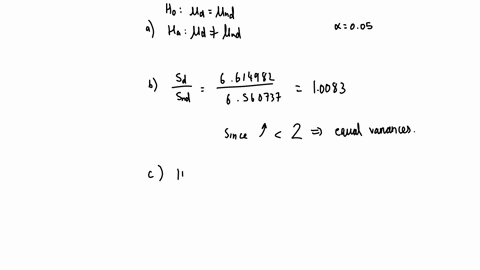 H₀ : μd = μnd
a) Hₐ : μd ≠ μnd α = 0.05
b) Sd / Snd = 6.614982 / 6.560737 = 1.0083
Since ↑ < 2 ⇒ equal variances.
c) 11